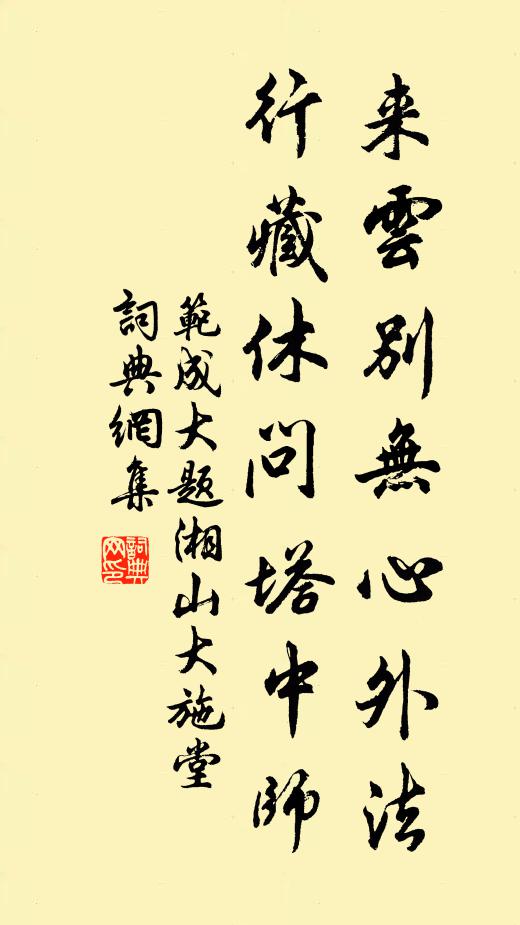 来雲别無心外法
行藏休問塔中師
範成大题湘山大施堂
詞典網集
詞典網印